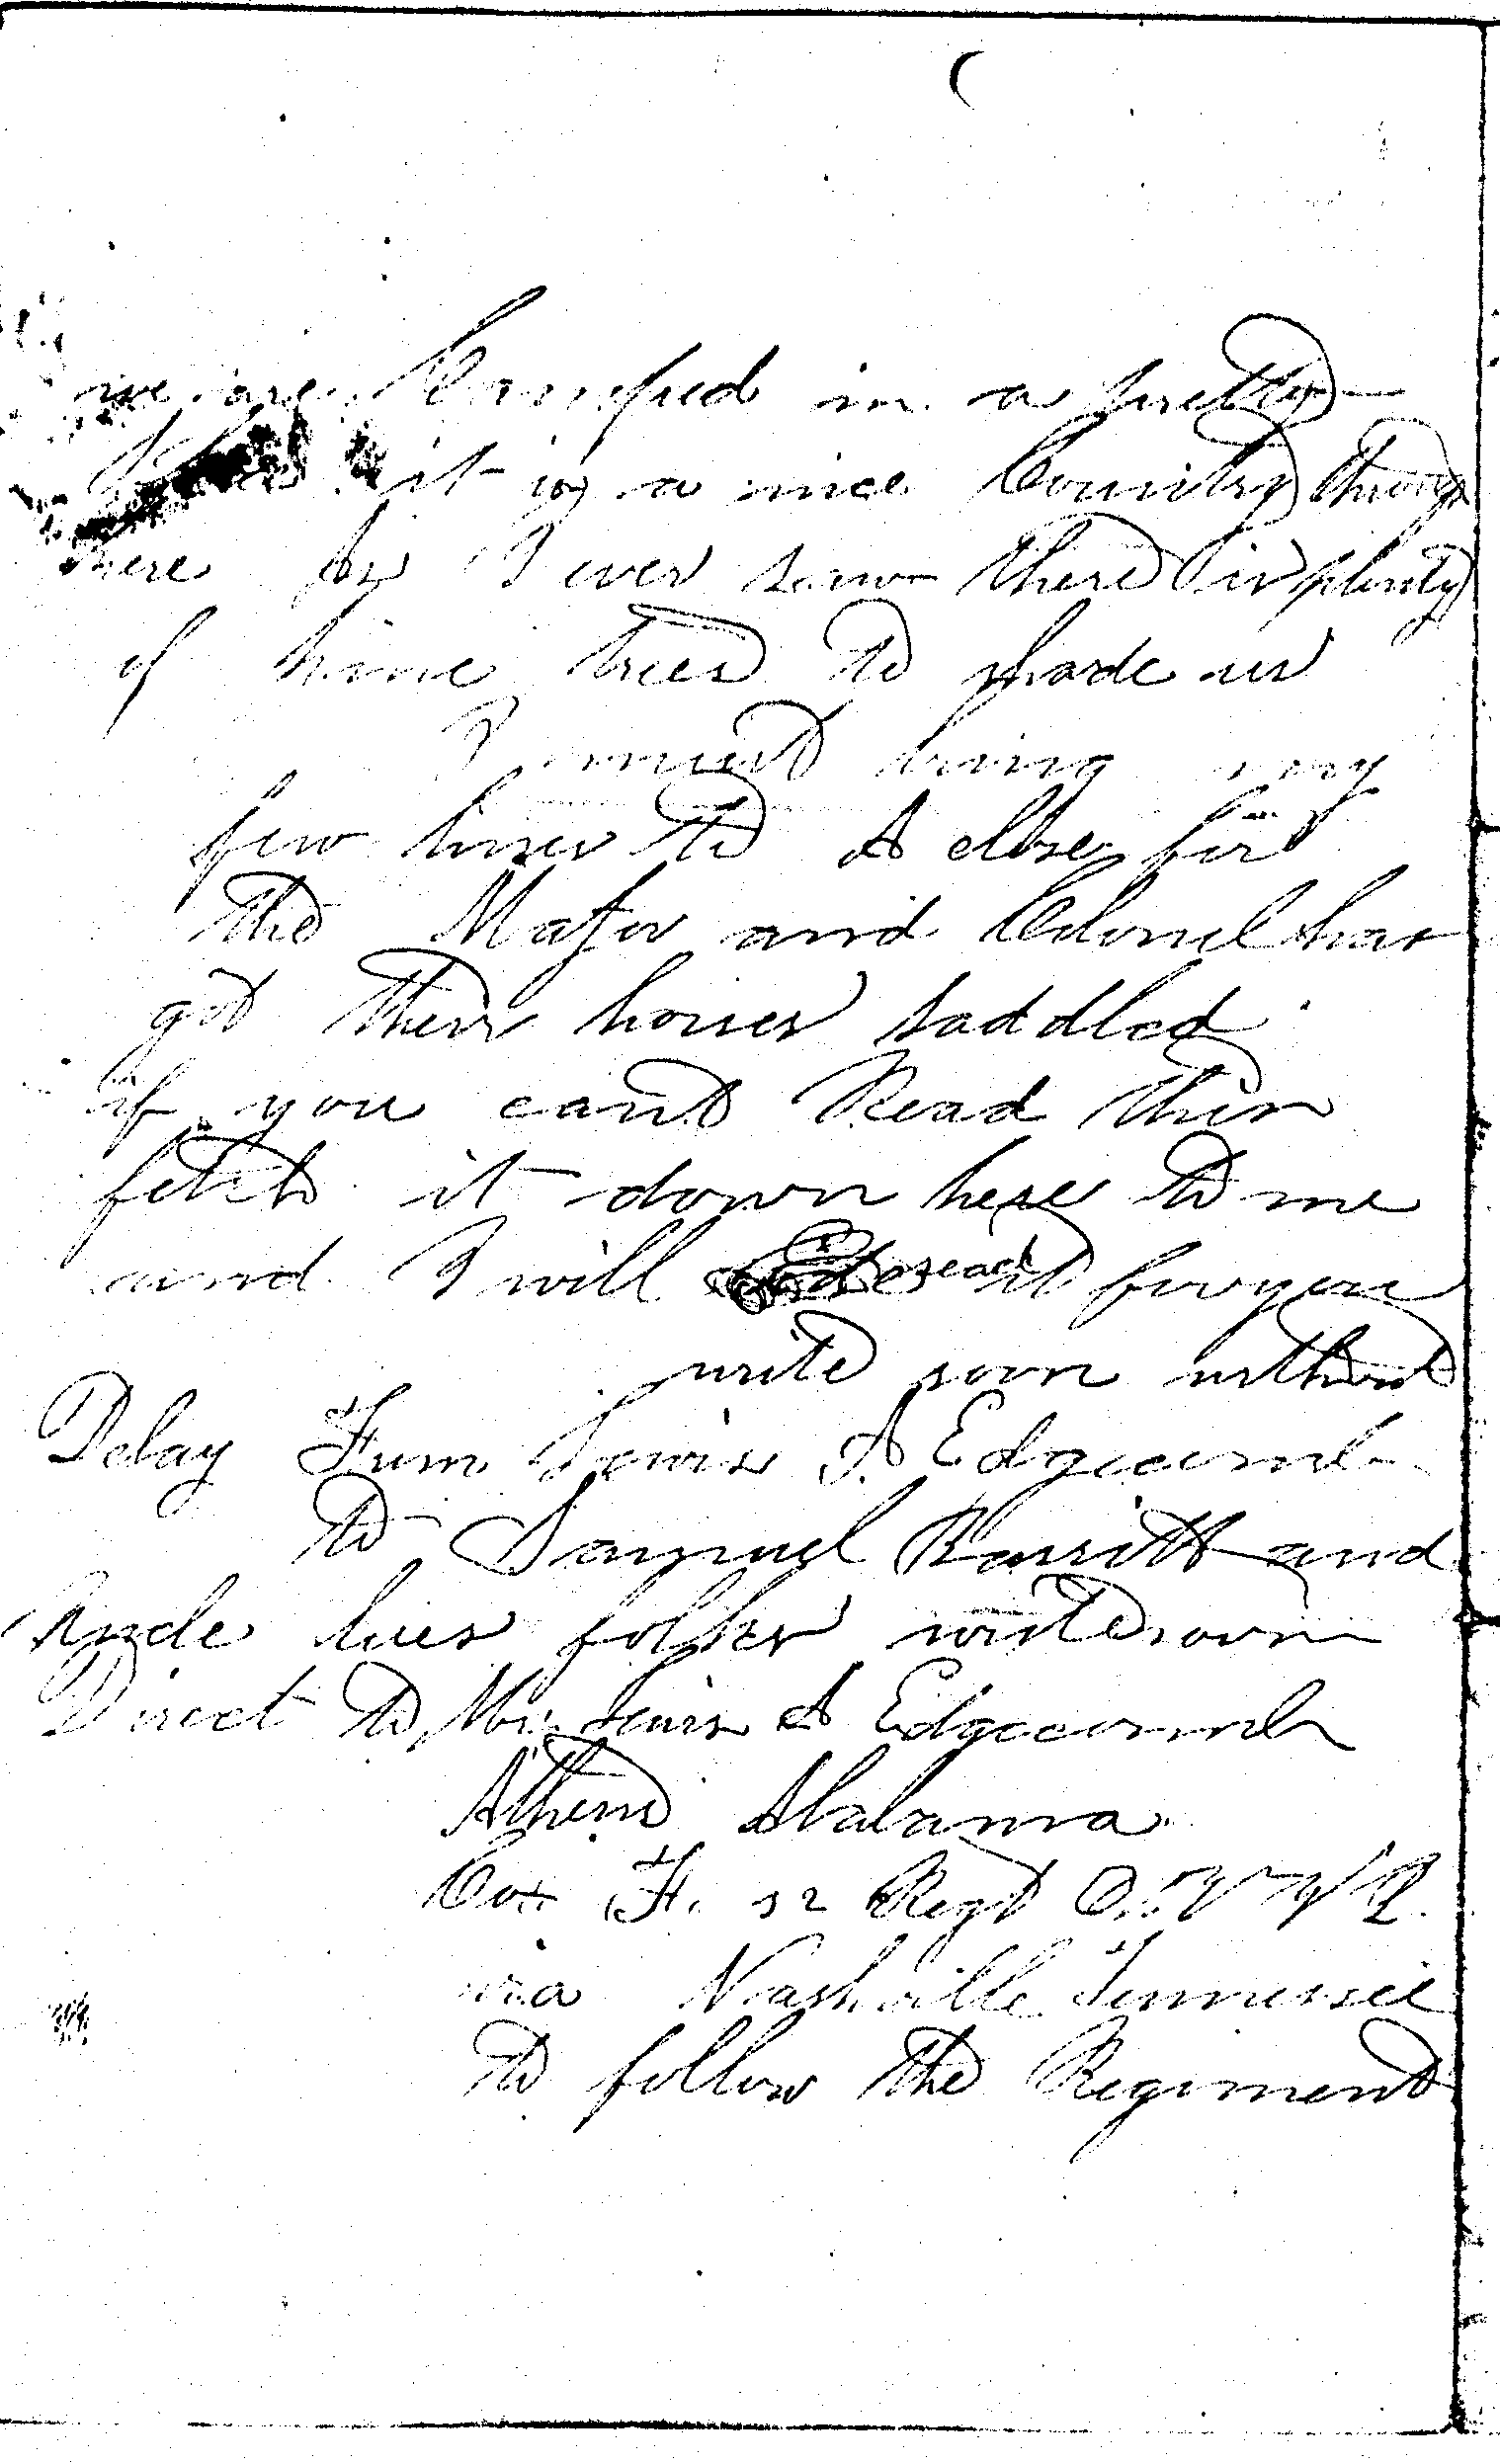 we are Camped in a pretty
place it is a nice Country through
here as I ever saw there is plenty
of trees to shade us
I must bring my
few lines to A close for
the Major and Colonel has
got their horses saddled
if you cant Read this
fetch it down here to me
and I will read it for you
write soon without
Delay From Lewis A Edgecomb
to Samuel Barritt and
Uncle folks write soon
Direct to Mr. Lewis A Edgecomb
Athens Alabama
Co F. 52 Regt O. V
via Nashville Tennessee
to follow the Regiment